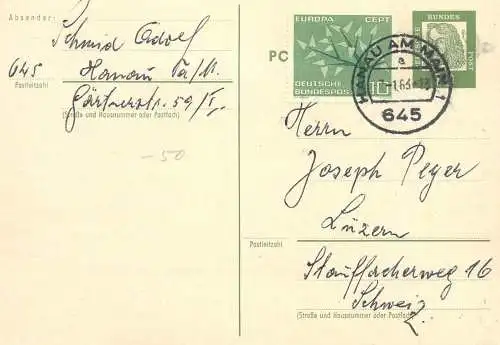 Absender:
Schmid Adolf
645 Hanau a/M.
Postleitzahl
Gärtnerstr. 59/I.
(Straße und Hausnummer oder Postfach)
-50
EUROPA CEPT
DEUTSCHE BUNDESPOST 10
PC
HANAU AM MAIN 1
a
645
BUNDES
POST
Herrn
Joseph Peyer
Luzern
Postleitzahl
Stauffacherweg 16
Schweiz
(Straße und Hausnummer oder Postfach)